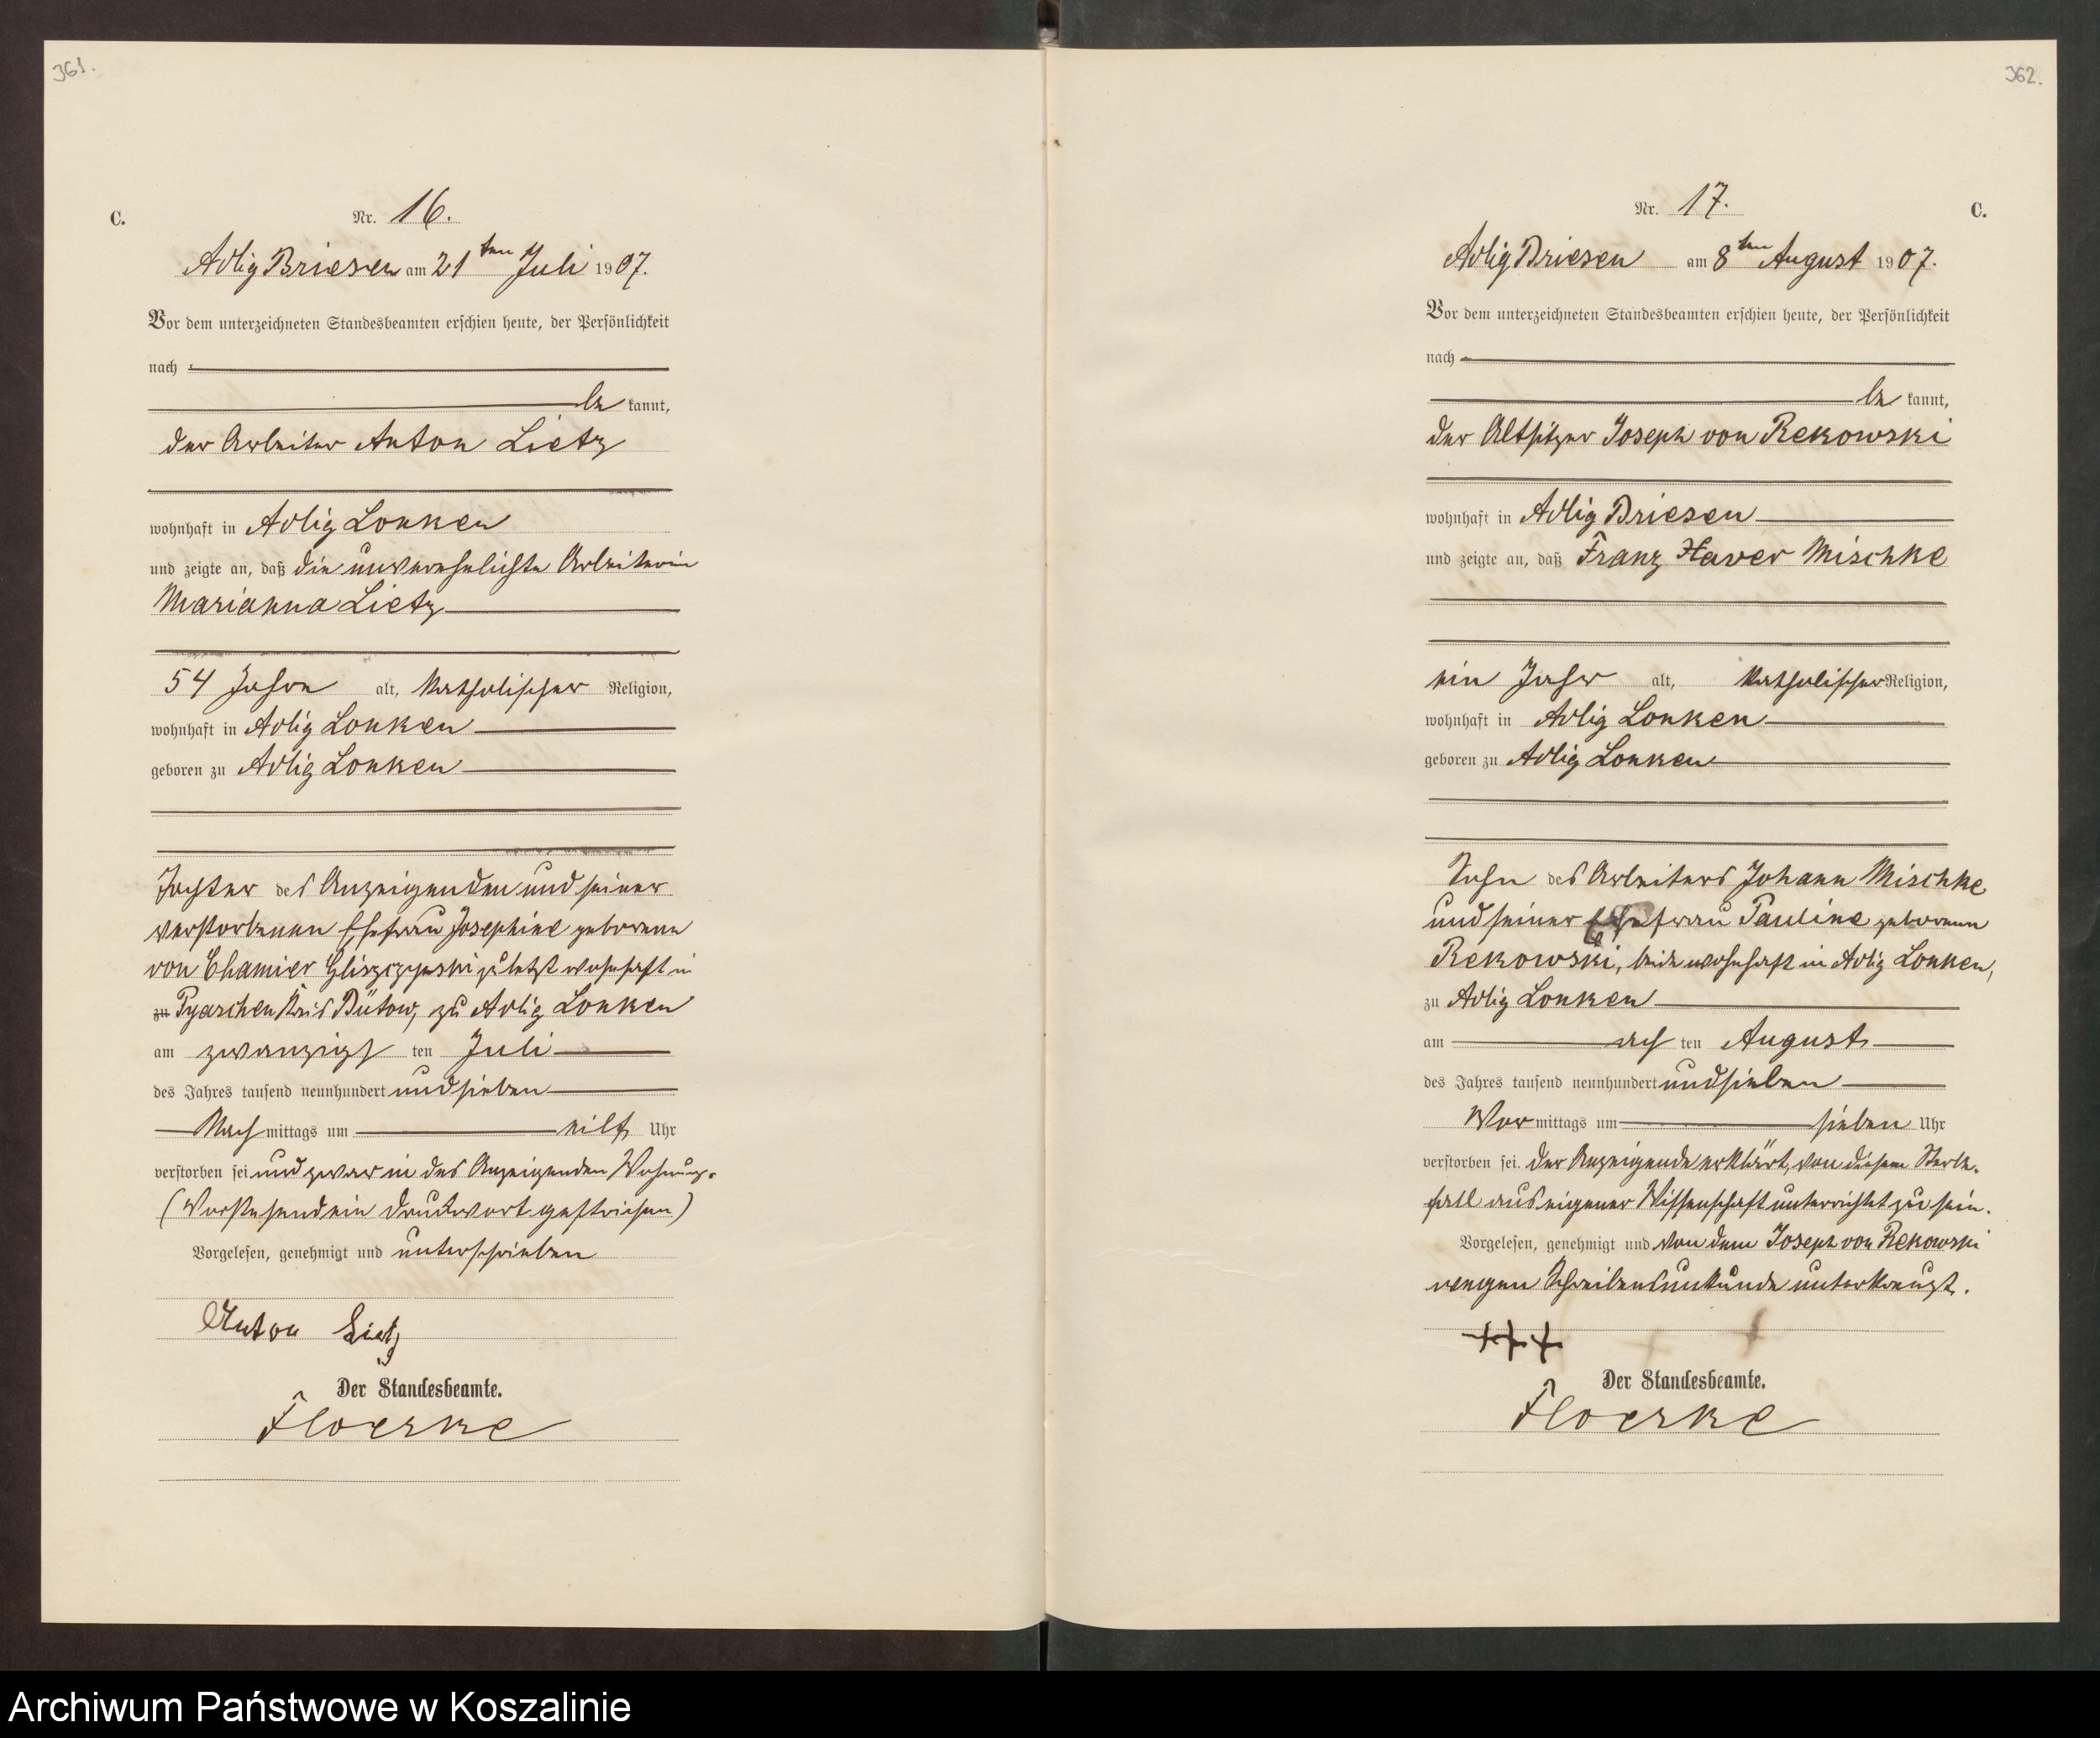 361.
C.
Nr. 16.
Adlig Briesen am 21ten Juli 1907.
Vor dem unterzeichneten Standesbeamten erschien heute, der Persönlichkeit
nach
be kannt,
der Arbeiter Anton Lietz
wohnhaft in Adlig Lonken
und zeigte an, daß die unverehelichte Arbeiterin
Marianna Lietz
54 Jahre alt, katholischer Religion,
wohnhaft in Adlig Lonken
geboren zu Adlig Lonken
Tochter des Anzeigenden und seiner
verstorbenen Ehefrau Josephine geborene
von Chamier Gliszczynski zuletzt wohnhaft in
zu Pyaschen Kreis Bütow, zu Adlig Lonken
am zwanzigs ten Juli
des Jahres tausend neunhundert und sieben
Nach mittags um eilf Uhr
verstorben sei und zwar in des Anzeigenden Wohnung.
(Vorstehend ein Druckwort gestrichen)
Vorgelesen, genehmigt und unterschrieben
Anton Lietz
Der Standesbeamte.
Floerke
362.
C.
Nr. 17.
Adlig Briesen am 8ten August 1907.
Vor dem unterzeichneten Standesbeamten erschien heute, der Persönlichkeit
nach
be kannt,
der Altsitzer Joseph von Rekowski
wohnhaft in Adlig Briesen
und zeigte an, daß Franz Xaver Mischke
ein Jahr alt, katholischer Religion,
wohnhaft in Adlig Lonken
geboren zu Adlig Lonken
Sohn des Arbeiters Johann Mischke
und seiner Ehefrau Pauline geborenen
Rekowski, beide wohnhaft in Adlig Lonken,
zu Adlig Lonken
am ach ten August
des Jahres tausend neunhundert und sieben
Vor mittags um sieben Uhr
verstorben sei. Der Anzeigende erklärt, von diesem Sterbe-
fall aus eigener Wissenschaft unterrichtet zu sein.
Vorgelesen, genehmigt und von dem Joseph von Rekowski
wegen Schreibensunkunde unterkreuzt.
+++
Der Standesbeamte.
Floerke
Archiwum Państwowe w Koszalinie